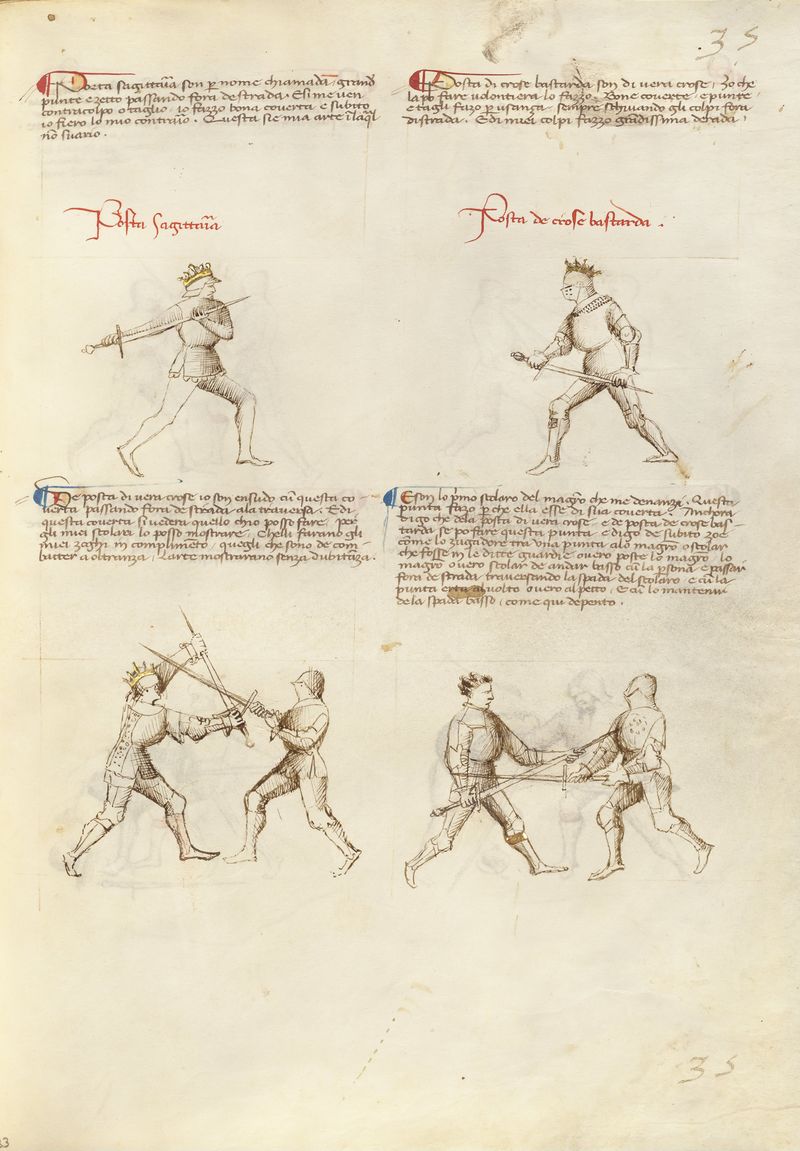 35
Posta sagittaria son per nome chiamada, grande
punte e zetto passando fora de strada. E si me ven
contra colpo o taglio, io fazzo bona coverta e subito
io fiero lo mio contrario. Questa sie mia arte in laqual
non svario.
Posta di crose bastarda son di vera crose, Zo che
la po fare volontiera lo fazzo. Bone coverte e punte
e tagli fazo per usanza, sempre schivando gli colpi fora
di strada. E di miei colpi fazzo grandissima derada,
Posta Sagittaria
Posta de crose bastarda.
De posta di vera crose io son ensudo cum questa co-
verta passando fora de strada ala traversa. E di
questa coverta si vedera quello ch'io posso fare, per
gli miei scolari lo posso mostrare. Chelli farano gli
miei zoghi in complimento, quegli che sono de com-
batter a oltranza, L'arte mostrarano senza dubitanza.
E son lo primo scolaro del magistro che me denanzi. Questa
punta fazo per che ella esse di sua coverta. Anchora
digo che dela posta di vera crose e de posta de crose bas-
tarda se po fare questa punta. e digo de subito zoe
come lo zugadore tra una punta alo magistro o scolar
che fosse in le ditte guardie overo poste lo magistro, lo
magistro overo scolar de andar basso cum la persona e passar
fora de strada traversando la spada del scolaro e cum la
punta erta al volto overo al petto, E cum lo mantenir
de la spada basso, come qui depento.
35
33